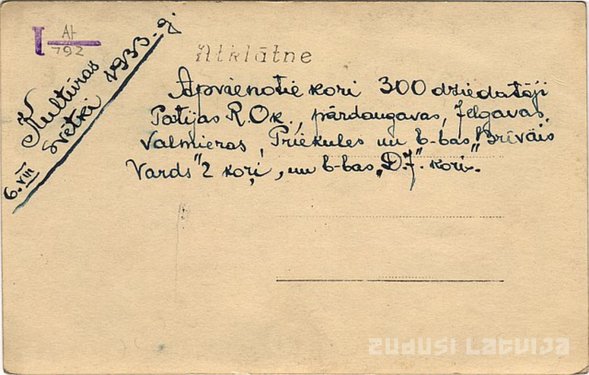 I AF
792
Atklātne
Kultūras 1933. g.
svētki
6. VIII
Apvienotie kori 300 dziedātāji
Partijas R. Ok., pārdaugavas, Jelgavas,
Valmieras, Priekules un b-bas "Brīvais
Vards" 2 kori, un b-bas "D.J." kori.
ZUDUSĪ LATVIJA